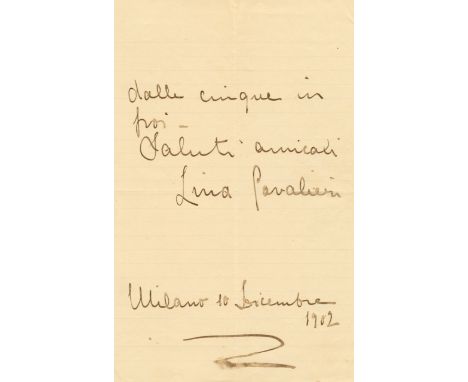 dalle cinque in
poi -
Saluti amicali
Lina Cavalieri
Milano 10 Dicembre
1902